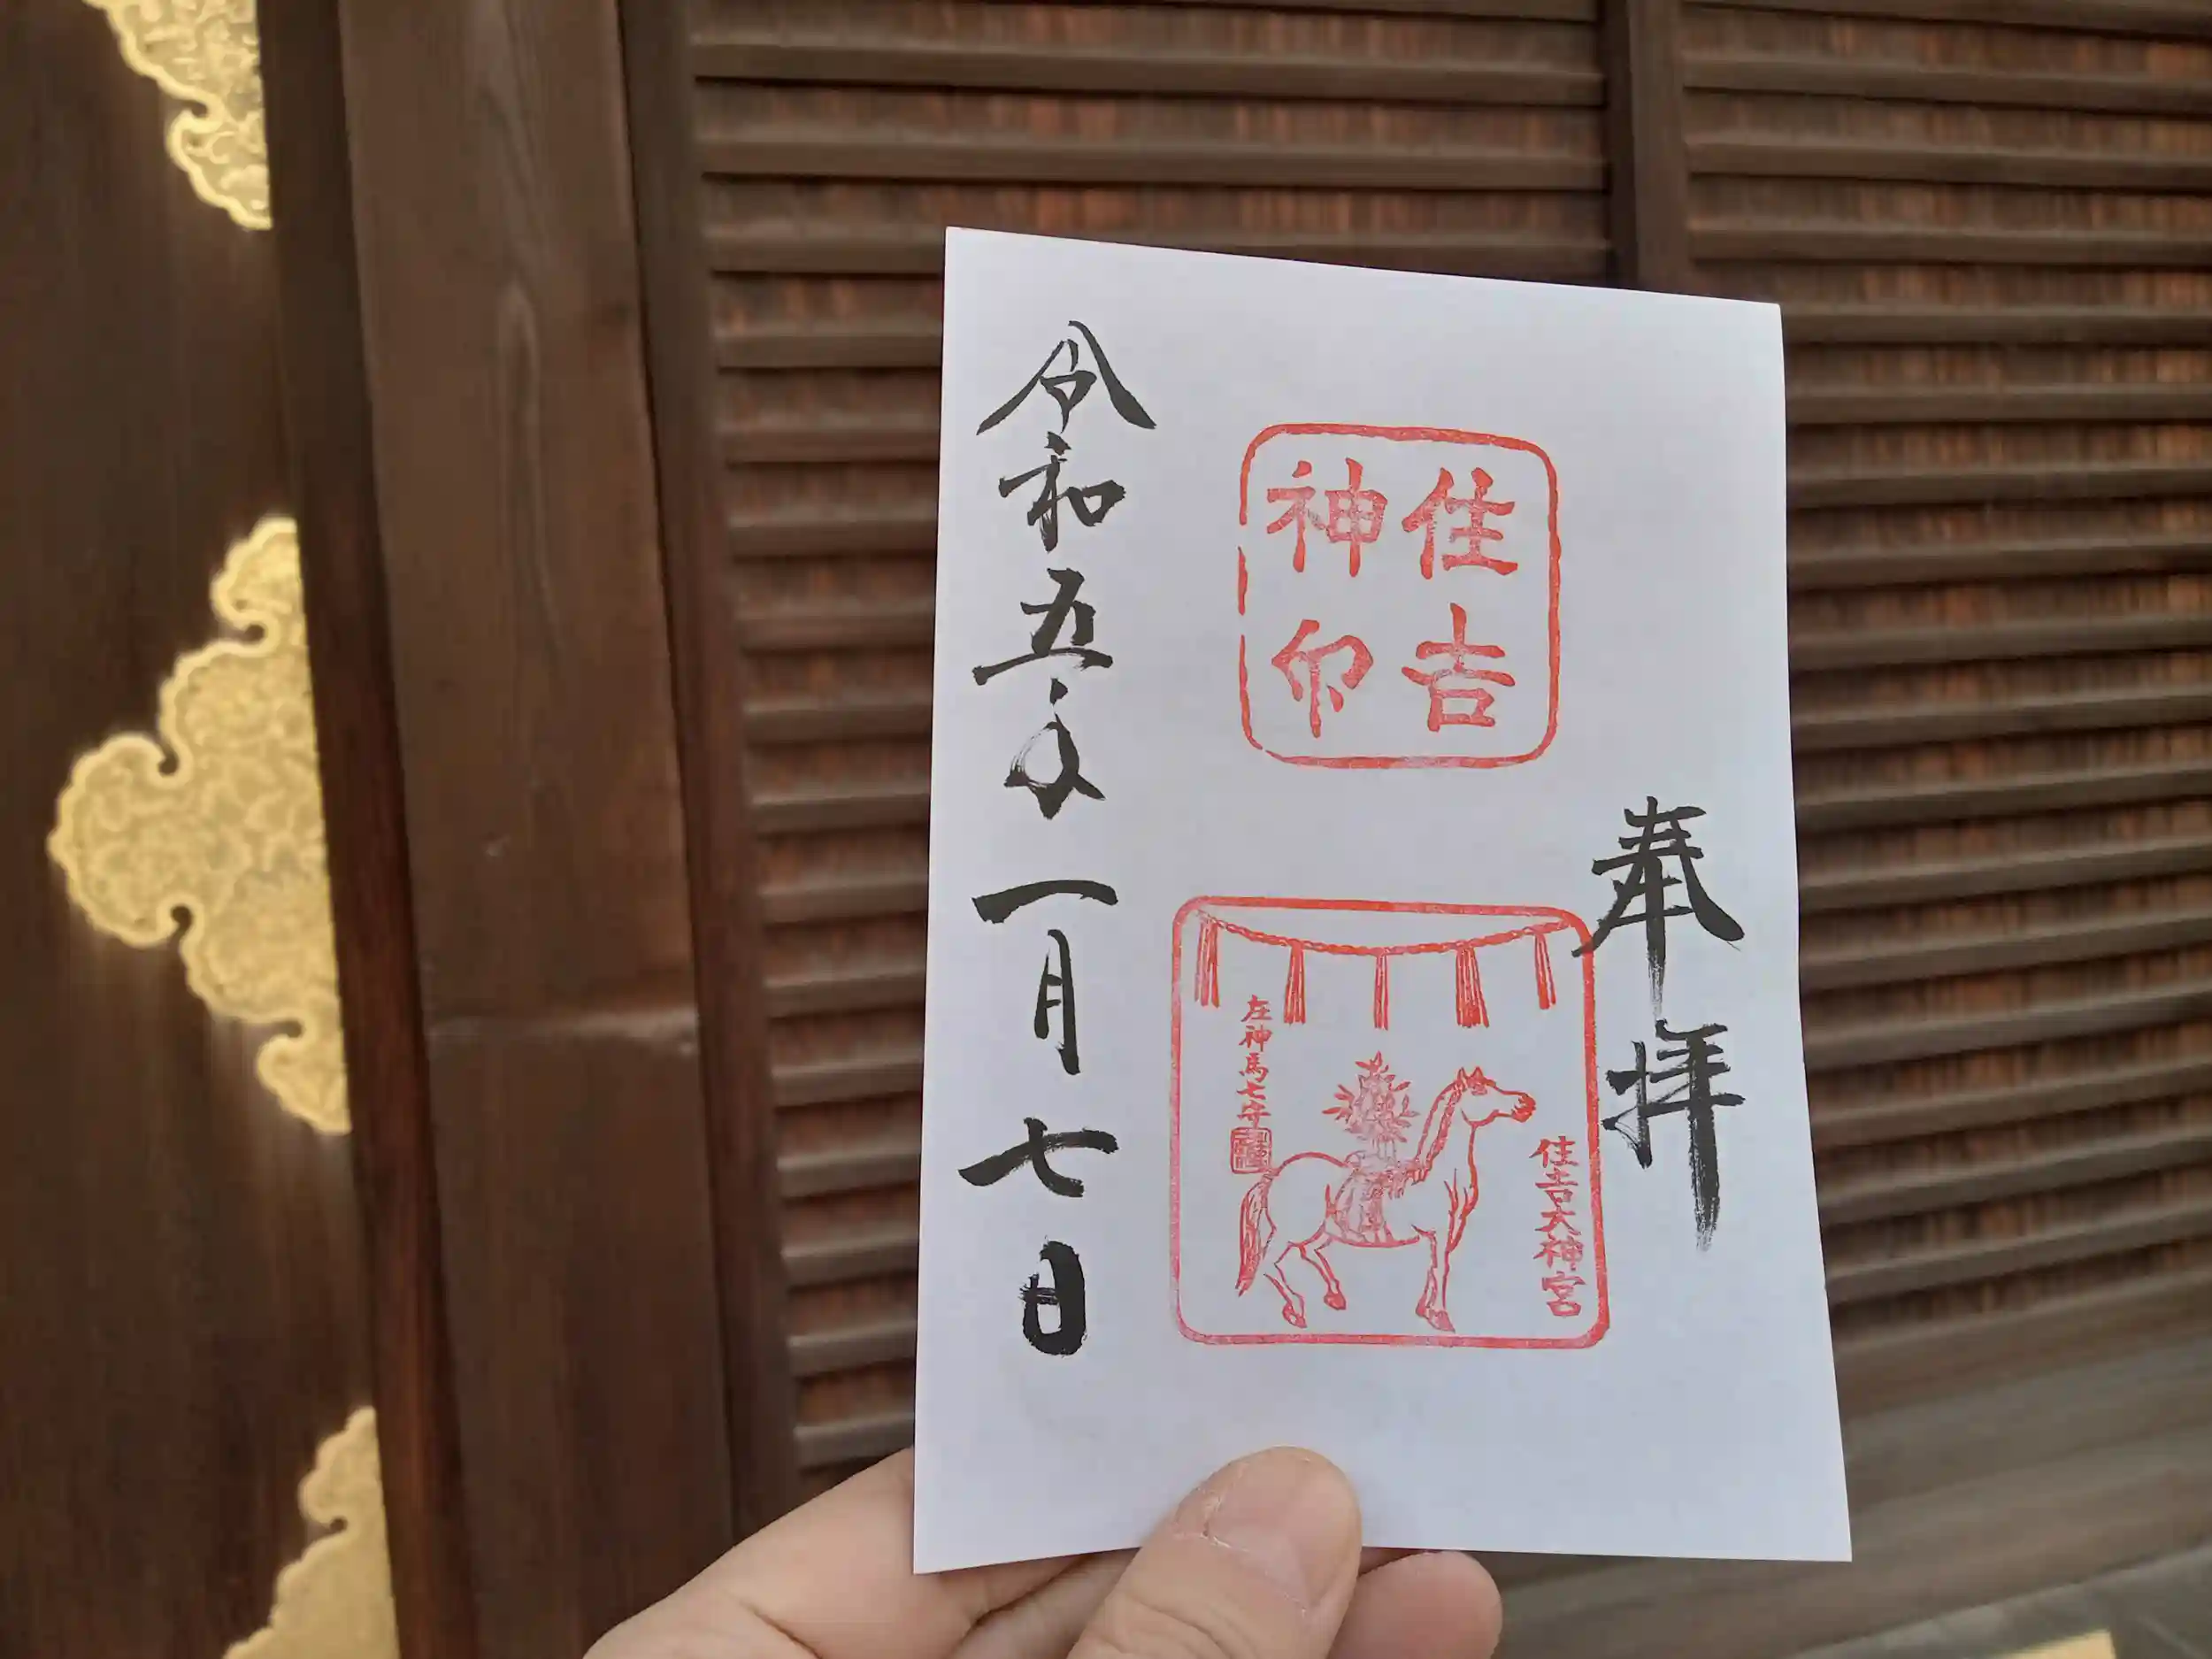 奉拝
住吉
神印
住吉大神宮
左神馬七守
令和五年一月七日